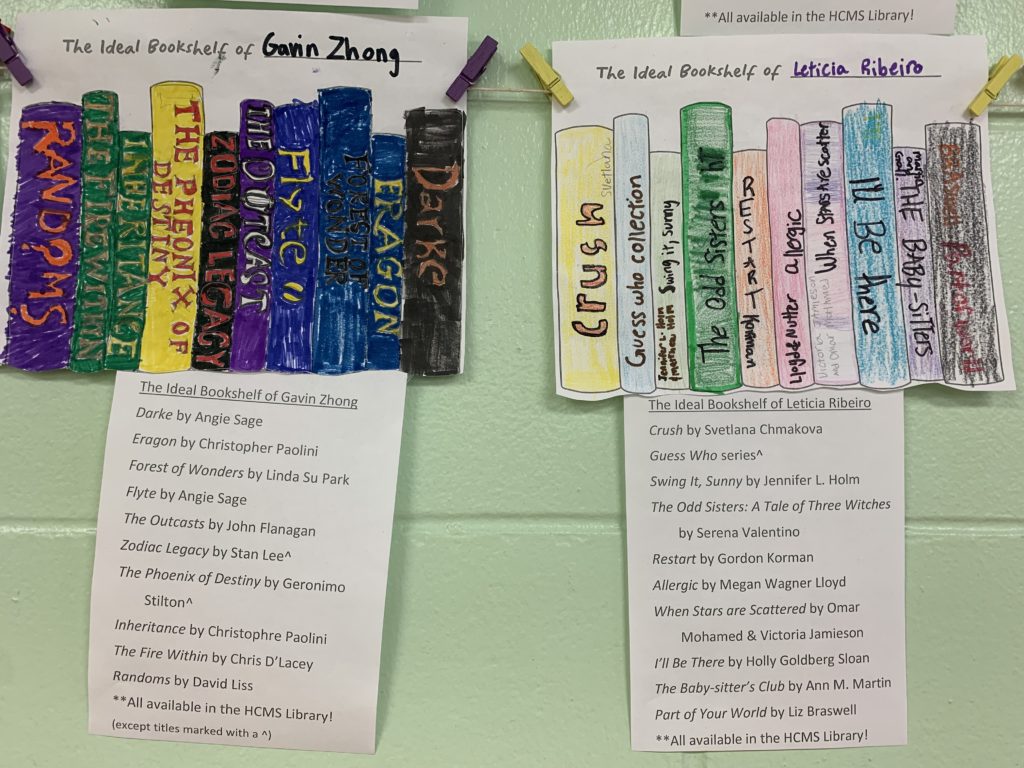 **All available in the HCMS Library!
The Ideal Bookshelf of Gavin Zhong
RANDOMS
THE FIRE WITHIN
INHERITANCE
THE PHEONIX OF
DESTINY
ZODIAC LEGACY
THE OUTCAST
Flyte
FOREST OF
WONDER
ERAGON
Darke
The Ideal Bookshelf of Gavin Zhong
Darke by Angie Sage
Eragon by Christopher Paolini
Forest of Wonders by Linda Su Park
Flyte by Angie Sage
The Outcasts by John Flanagan
Zodiac Legacy by Stan Lee^
The Phoenix of Destiny by Geronimo
Stilton^
Inheritance by Christophre Paolini
The Fire Within by Chris D'Lacey
Randoms by David Liss
**All available in the HCMS Library!
(except titles marked with a ^)
The Ideal Bookshelf of Leticia Ribeiro
Crush Svetlana
Guess who collection
Swing it, Sunny
The Odd Sisters
RESTART Korman
Lloyd & Nutter allergic
When Stars are scatter
Victoria Jamieson
and Omar
I'll Be there
THE BABY-sitters
The Ideal Bookshelf of Leticia Ribeiro
Crush by Svetlana Chmakova
Guess Who series^
Swing It, Sunny by Jennifer L. Holm
The Odd Sisters: A Tale of Three Witches
by Serena Valentino
Restart by Gordon Korman
Allergic by Megan Wagner Lloyd
When Stars are Scattered by Omar
Mohamed & Victoria Jamieson
I'll Be There by Holly Goldberg Sloan
The Baby-sitter's Club by Ann M. Martin
Part of Your World by Liz Braswell
**All available in the HCMS Library!